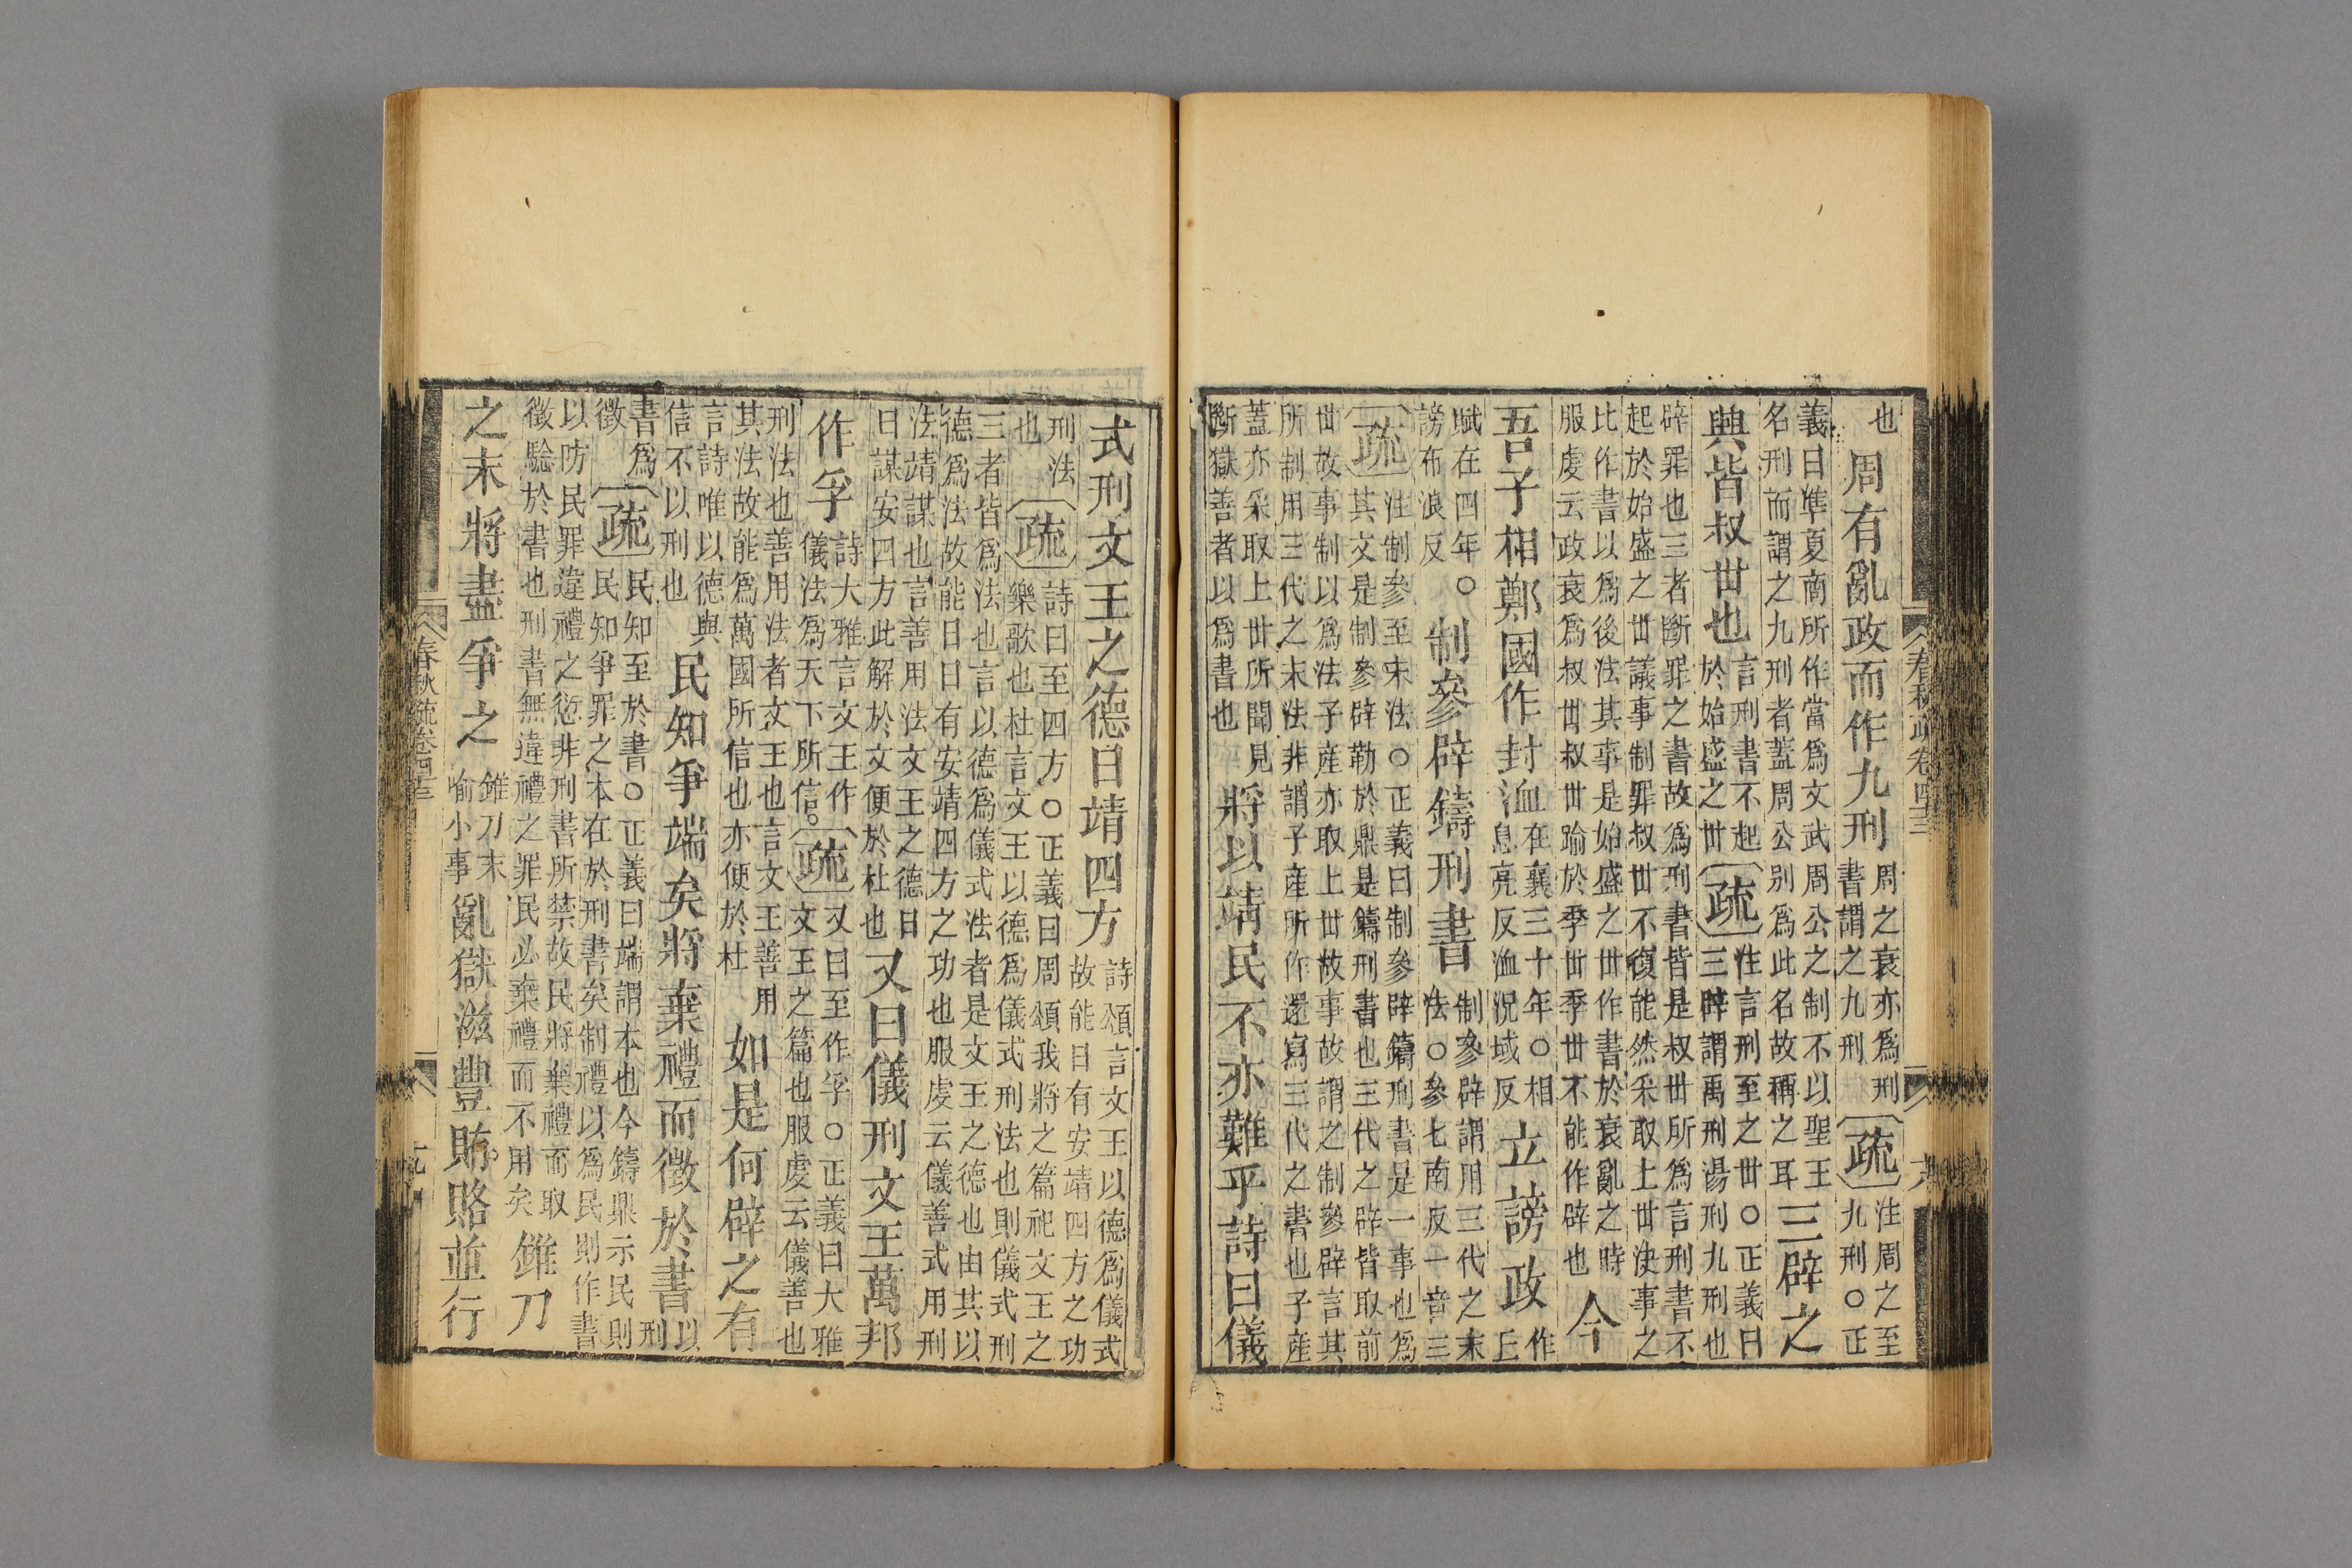 也 周有亂政而作九刑 周之衰亦爲刑書謂之九刑 疏 注周之至九刑○正
義曰準夏商所作當爲文武周公之制不以聖王名刑而謂之九刑者蓋周公別爲此名故稱之耳 三辟之
興皆叔丗也 言刑書不起於始盛之丗 疏 注言刑至之丗○正義曰三辟謂禹刑湯刑九刑也
辟罪也三者斷罪之書故爲刑書皆是叔丗所爲言刑書不
起於始盛之丗議事制罪叔丗不復能然采取上丗決事之
比作書以爲後法其事是始盛之丗作書於衰亂之時服虔云政衰爲叔丗叔丗踰於季丗季丗不能作辟也 今
吾子相鄭國作封洫 在襄三十年○相息亮反洫況域反 立謗政 作丘
賦在四年○謗布浪反 制參辟鑄刑書 制參辟謂用三代之末法○參七南反一音三
疏 注制參至末法○正義曰制參辟鑄刑書是一事也爲其文是制參辟勒於鼎是鑄刑書也三代之辟皆取前
丗故事制以爲法子產亦取上丗故事故謂之制參辟言其
所制用三代之末法非謂子產所作還寫三代之書也子產
蓋亦采取上丗所聞見斷獄善者以爲書也 將以靖民不亦難乎詩曰儀
春秋疏卷四十三
式刑文王之德日靖四方 詩頌言文王以德爲儀式故能日有安靖四方之功
刑法也 疏 詩曰至四方○正義曰周頌我將之篇祀文王之樂歌也杜言文王以德爲儀式刑法也則儀式刑
三者皆爲法也言以德爲儀式法者是文王之德也由其以
德爲法故能日日有安靖四方之功也服虔云儀善式用刑
法靖謀也言善用法文王之德日日謀安四方此解於文便於杜也 又曰儀刑文王萬邦
作孚 詩大雅言文王作儀法爲天下所信○ 疏 又曰至作孚○正義曰大雅文王之篇也服虔云儀善也
刑法也善用法者文王也言文王善用其法故能爲萬國所信也亦便於杜 如是何辟之有
言詩唯以德與信不以刑也 民知爭端矣將棄禮而徵於書 以刑
書爲徵 疏 民知至於書○正義曰端謂本也今鑄鼎示民則民知爭罪之本在於刑書矣制禮以爲民則作書
以防民罪違禮之愆非刑書所禁故民將棄禮而取徵驗於書也刑書無違禮之罪民必棄禮而不用矣 錐刀
之末將盡爭之 錐刀末喻小事 亂獄滋豐賄賂並行
春秋疏卷四十三